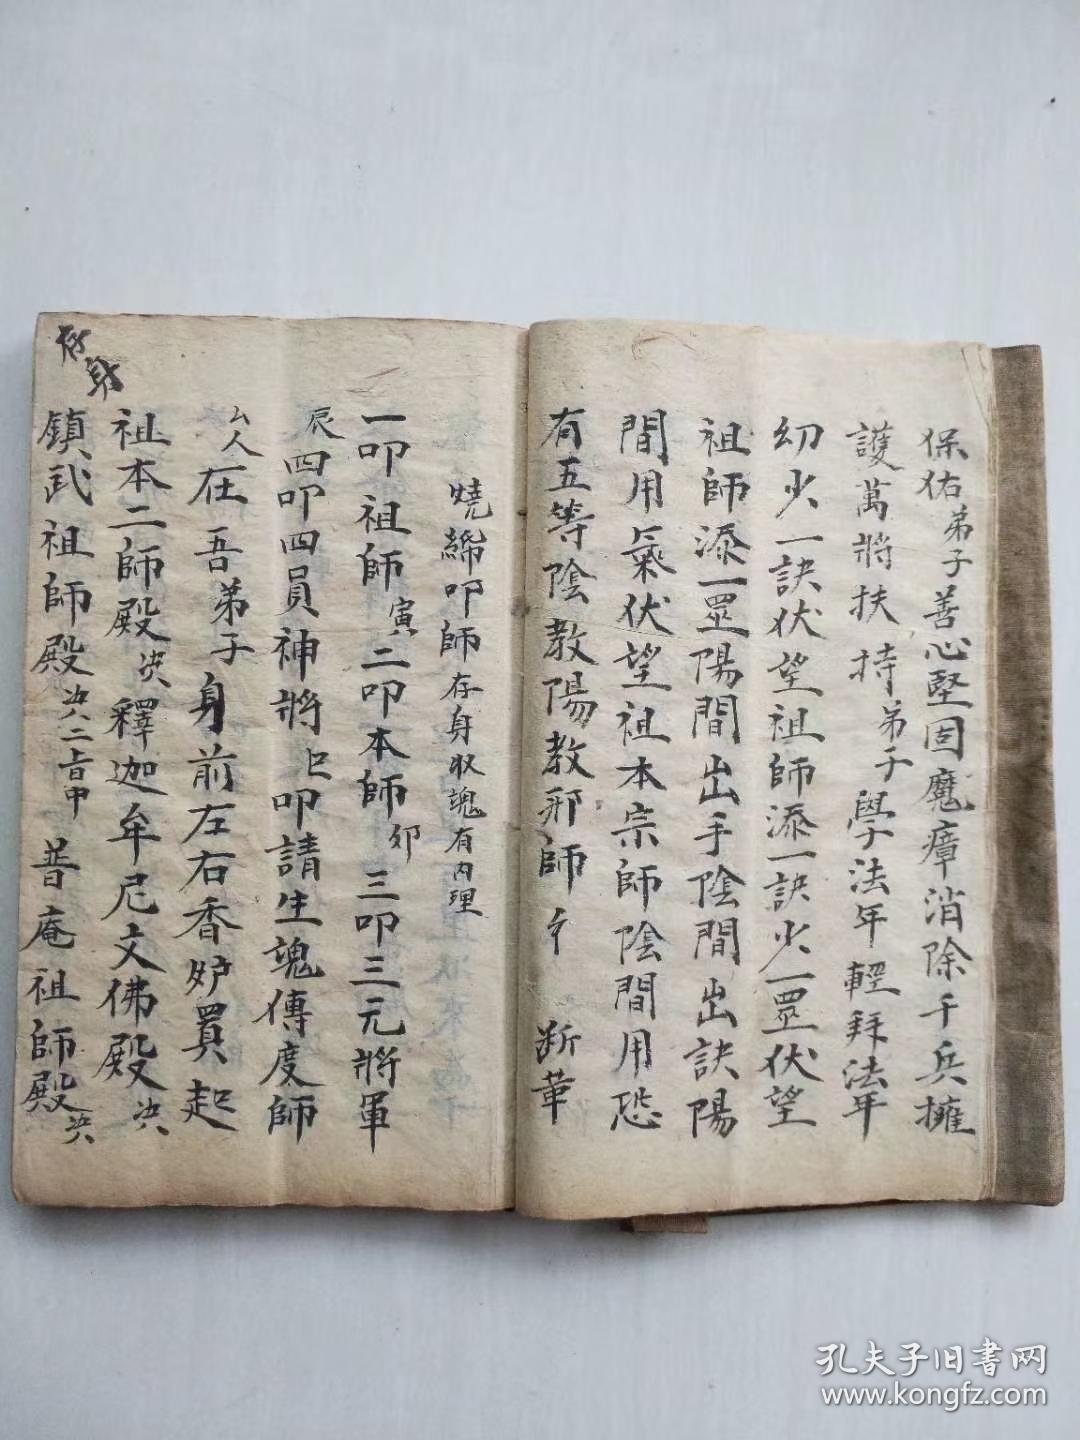 保佑弟子善心堅固魔瘴消除千兵擁
護萬將扶持弟子學法年輕拜法年
幼少一訣伏望祖師添一訣少一罡伏望
祖師添一罡陽間出手陰間出訣陽
間用氣伏望祖本宗師陰間用恐
有五等陰教陽教邪師 断
燒綿叩師存身收魂有內理
一叩祖師寅二叩本師卯三叩三元將軍
辰四叩四員神將巳叩請生魂傳度師
人在吾弟子身前左右香炉買起
祖本二師殿决釋迦牟尼文佛殿决
鎮武祖師殿决二 普庵祖師殿决
存身
孔夫子旧书网
www.kongfz.com